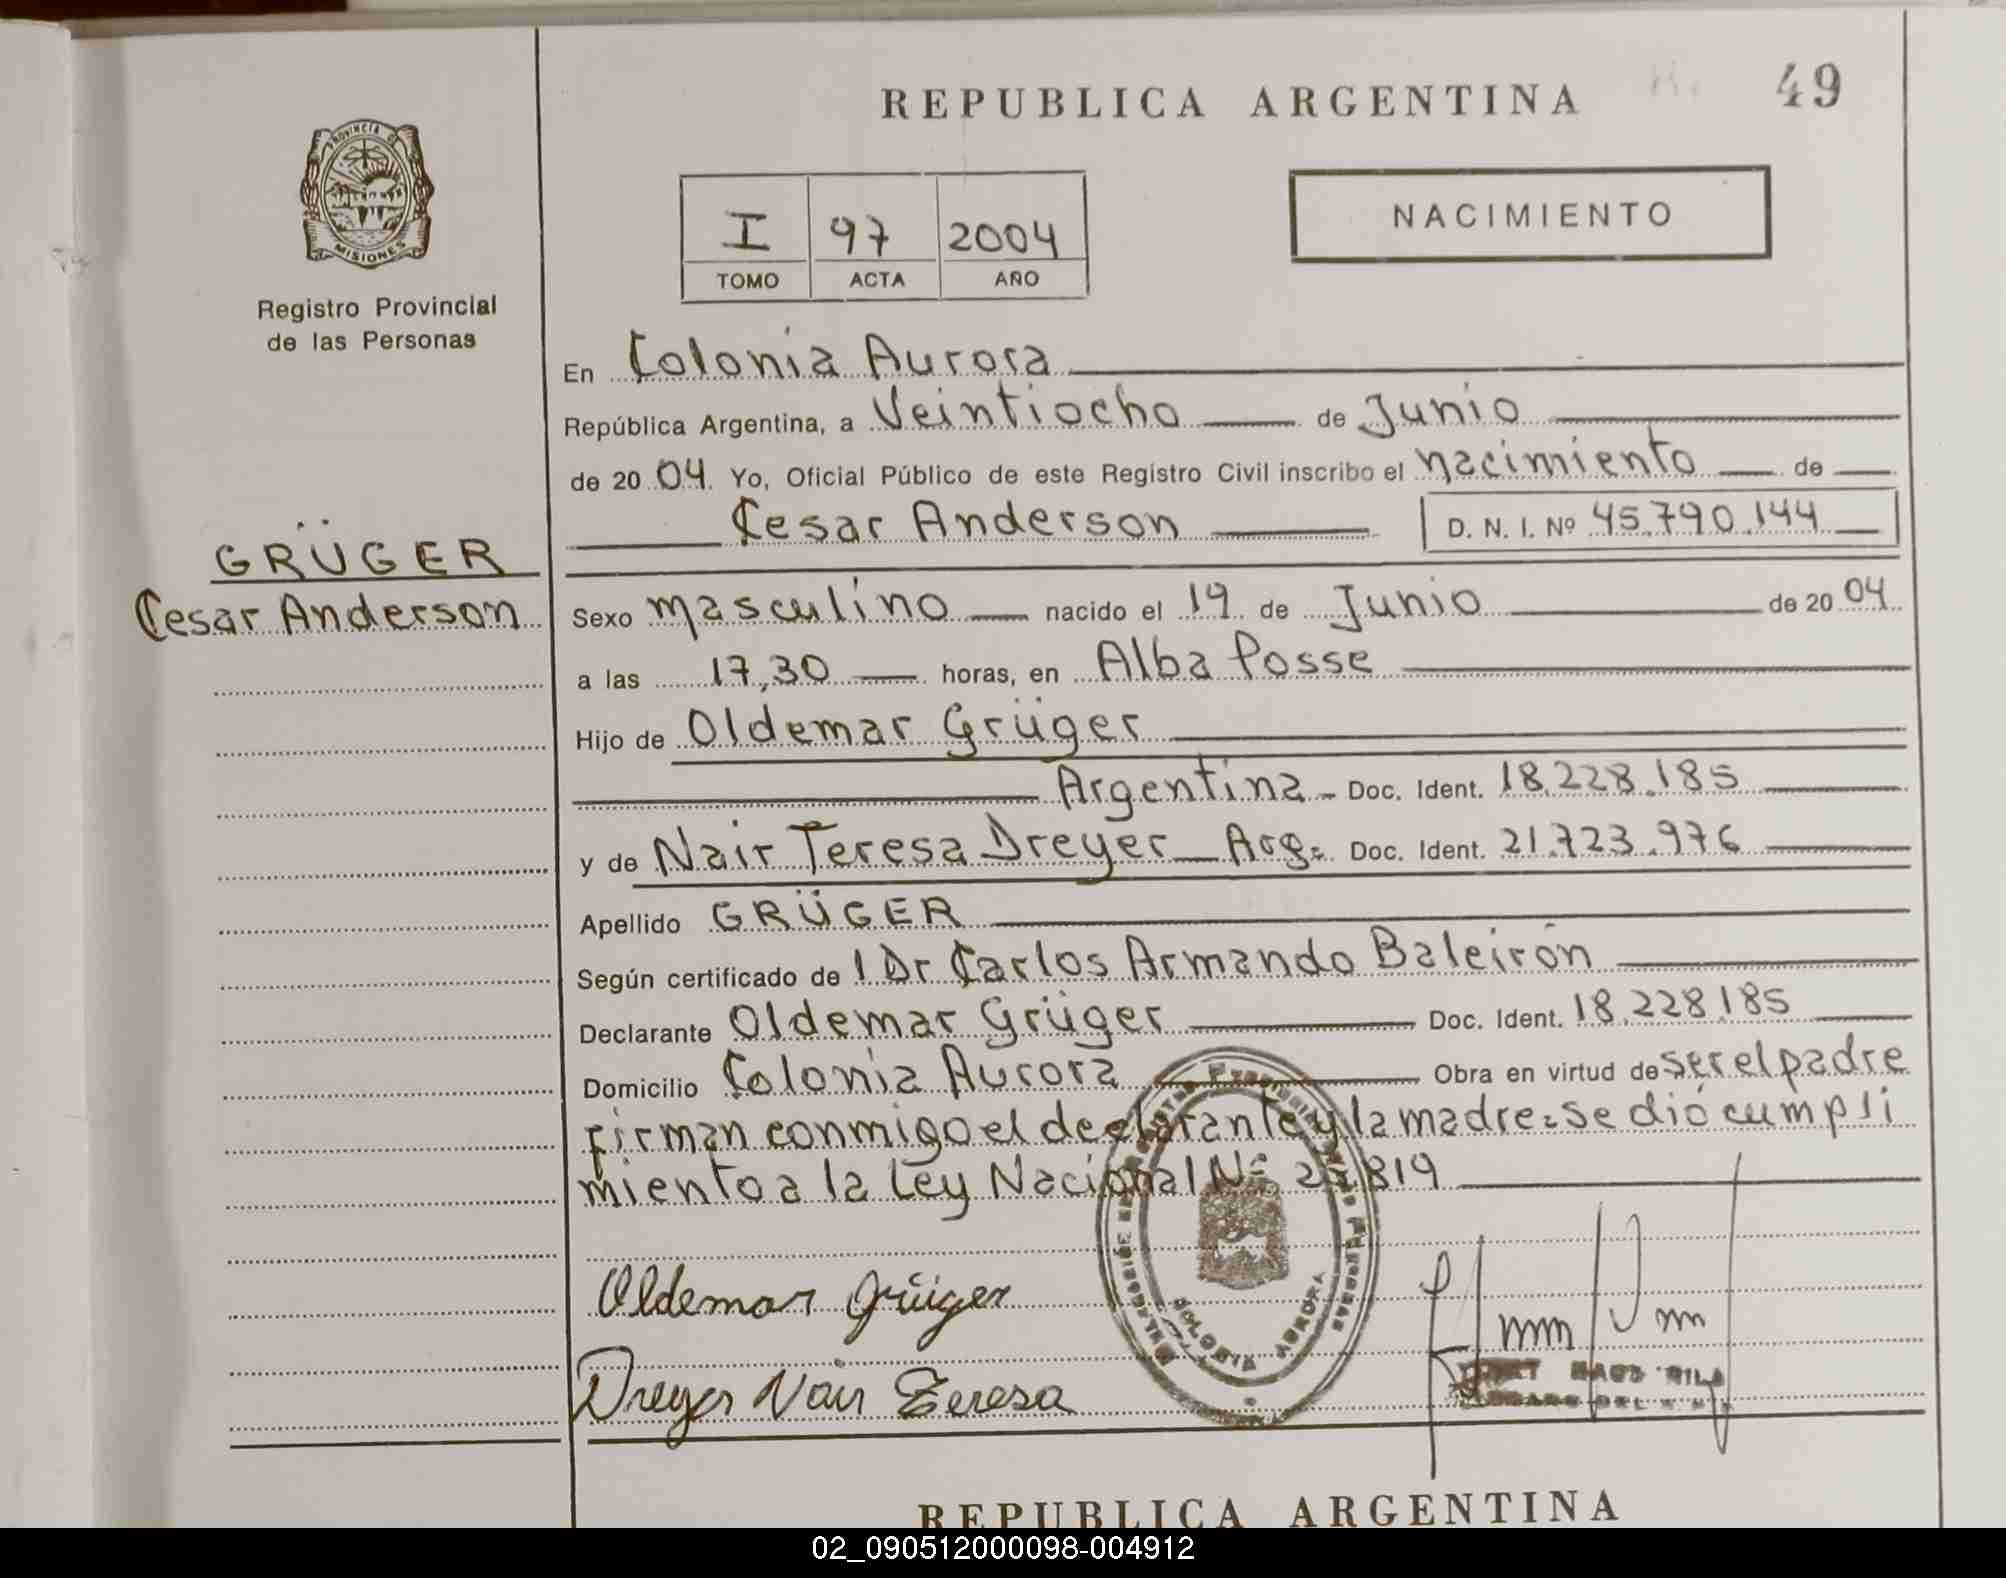 REPUBLICA ARGENTINA
49
PROVINCIA DE
MISIONES
Registro Provincial
de las Personas
I 97 2004
TOMO ACTA AÑO
NACIMIENTO
En Colonia Aurora
República Argentina, a Veintiocho de Junio
de 2004. Yo, Oficial Público de este Registro Civil inscribo el nacimiento de
Cesar Anderson D. N. I. Nº 45.790.144
GRÜGER
Cesar Anderson
Sexo masculino nacido el 19 de Junio de 2004
a las 17,30 horas, en Alba Posse
Hijo de Oldemar Grüger
Argentina Doc. Ident. 18.228.185
y de Nair Teresa Dreyer Arg. Doc. Ident. 21.723.976
Apellido GRÜGER
Según certificado de l Dr Carlos Armando Baleirón
Declarante Oldemar Grüger Doc. Ident. 18.228.185
Domicilio Colonia Aurora Obra en virtud de ser el padre
firman conmigo el declarante y la madre. Se dió cumpli
miento a la Ley Nacional Nº
COLONIA AURORA
Oldemar Grüger
Dreyer Nair Teresa
REPUBLICA ARGENTINA
02_090512000098-004912